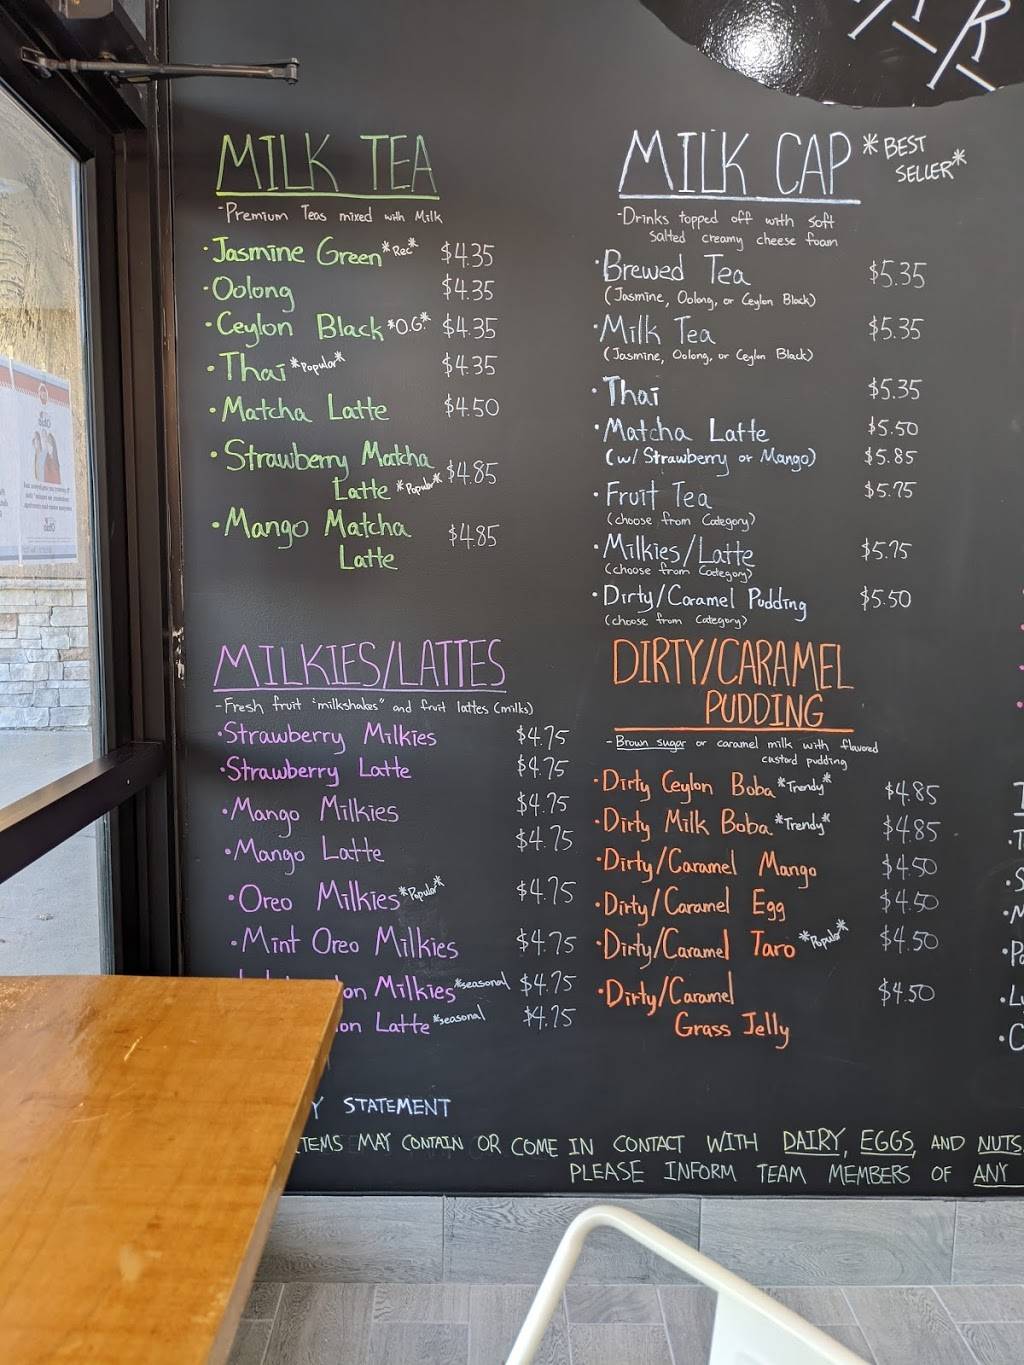 MILK TEA
-Premium Teas mixed with Milk
·Jasmine Green *Rec* $4.35
·Oolong $4.35
·Ceylon Black *O.G.* $4.35
·Thai *Popular* $4.35
·Matcha Latte $4.50
·Strawberry Matcha
Latte *Popular* $4.85
·Mango Matcha
Latte $4.85
MILK CAP *BEST
SELLER*
-Drinks topped off with soft
salted creamy cheese foam
·Brewed Tea $5.35
(Jasmine, Oolong, or Ceylon Black)
·Milk Tea $5.35
(Jasmine, Oolong, or Ceylon Black)
·Thai $5.35
·Matcha Latte $5.50
(w/ Strawberry or Mango) $5.85
·Fruit Tea $5.75
(choose from Category)
·Milkies/Latte $5.75
(choose from Category)
·Dirty/Caramel Pudding $5.50
(choose from Category)
MILKIES/LATTES
-Fresh fruit "milkshakes" and fruit lattes (milks)
·Strawberry Milkies $4.75
·Strawberry Latte $4.75
·Mango Milkies $4.75
·Mango Latte $4.75
·Oreo Milkies *Popular* $4.75
·Mint Oreo Milkies $4.75
on Milkies *seasonal $4.75
on Latte *seasonal $4.75
DIRTY/CARAMEL
PUDDING
-Brown sugar or caramel milk with flavored
custard pudding
·Dirty Ceylon Boba *Trendy* $4.85
·Dirty Milk Boba *Trendy* $4.85
·Dirty/Caramel Mango $4.50
·Dirty/Caramel Egg $4.50
·Dirty/Caramel Taro *Popular* $4.50
·Dirty/Caramel $4.50
Grass Jelly
Y STATEMENT
TEMS MAY CONTAIN OR COME IN CONTACT WITH DAIRY, EGGS, AND NUTS.
PLEASE INFORM TEAM MEMBERS OF ANY